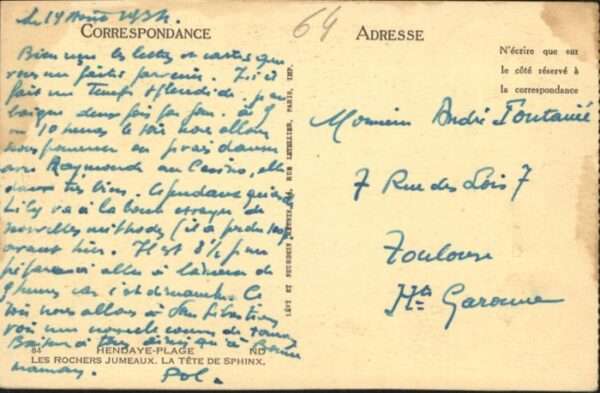 Le 19 Août 1934.
64
CORRESPONDANCE
ADRESSE
N'écrire que sur
le côté réservé à
la correspondance
Bien reçu les lettres et cartes que
vous m'faites parvenir. Ici il
fait un temps splendide. je me
baigne deux fois par jour. à 9
ou 10 heures le soir nous allons
nous promener ou je vais danser
avec Raymonde au Casino, elle
danse très bien. Cependant quand
Lily va à la boule essayer de
nouvelles méthodes (il a perdu 100
avant hier. Il est 8½
préparer à aller à la messe de
9 heures car c'est dimanche. Ce
soir nous allons à San Sébastien
voir une nouvelle course de
Baisers à tous ainsi qu'à Bonne
maman. Pol.
Monsieur André Fontanié
7 Rue des Lois 7
Toulouse
Hte Garonne
LÉVY ET NEURDEIN RÉUNIS, 44, RUE LETELLIER, PARIS, IMP.
84 HENDAYE-PLAGE ND
LES ROCHERS JUMEAUX. LA TÊTE DE SPHINX.